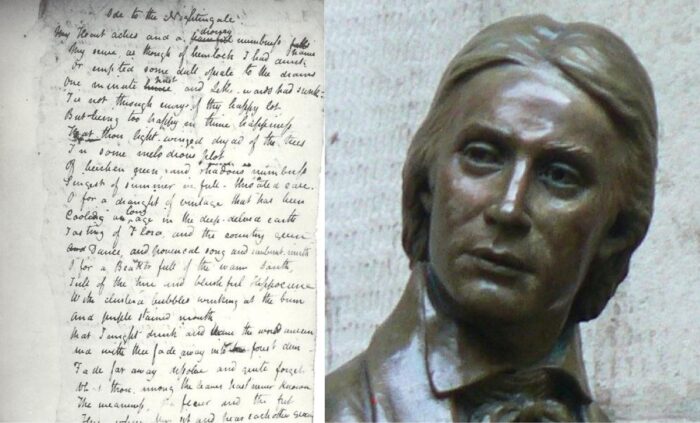 Ode to the Nightingale
My Heart aches and a drowsy numbness pains
My sense as though of hemlock I had drunk
Or emptied some dull opiate to the drains
One minute past and Lethe-wards had sunk
Tis not through envy of thy happy lot
But being too happy in thine happiness
That thou light-winged dryad of the trees
In some melodious plot
Of beechen green and shadows numberless
Singest of summer in full-throated ease.
O for a draught of vintage that has been
Cooling an long age in the deep-delved earth
Tasting of Flora, and the country green
And Dance, and provencal song and sunburnt mirth
O for a Beaker full of the warm South,
Full of the true and blushful Hippocrene
With cluster'd bubbles winking at the brim
and purple stained mouth
that I might drink and leave the world unseen
And with thee fade away into forest dim
Fade far away dissolve and quite forget
What thou among the leaves hast never known
The weariness, the fever and the fret
Here where Men sit and hear each other groan